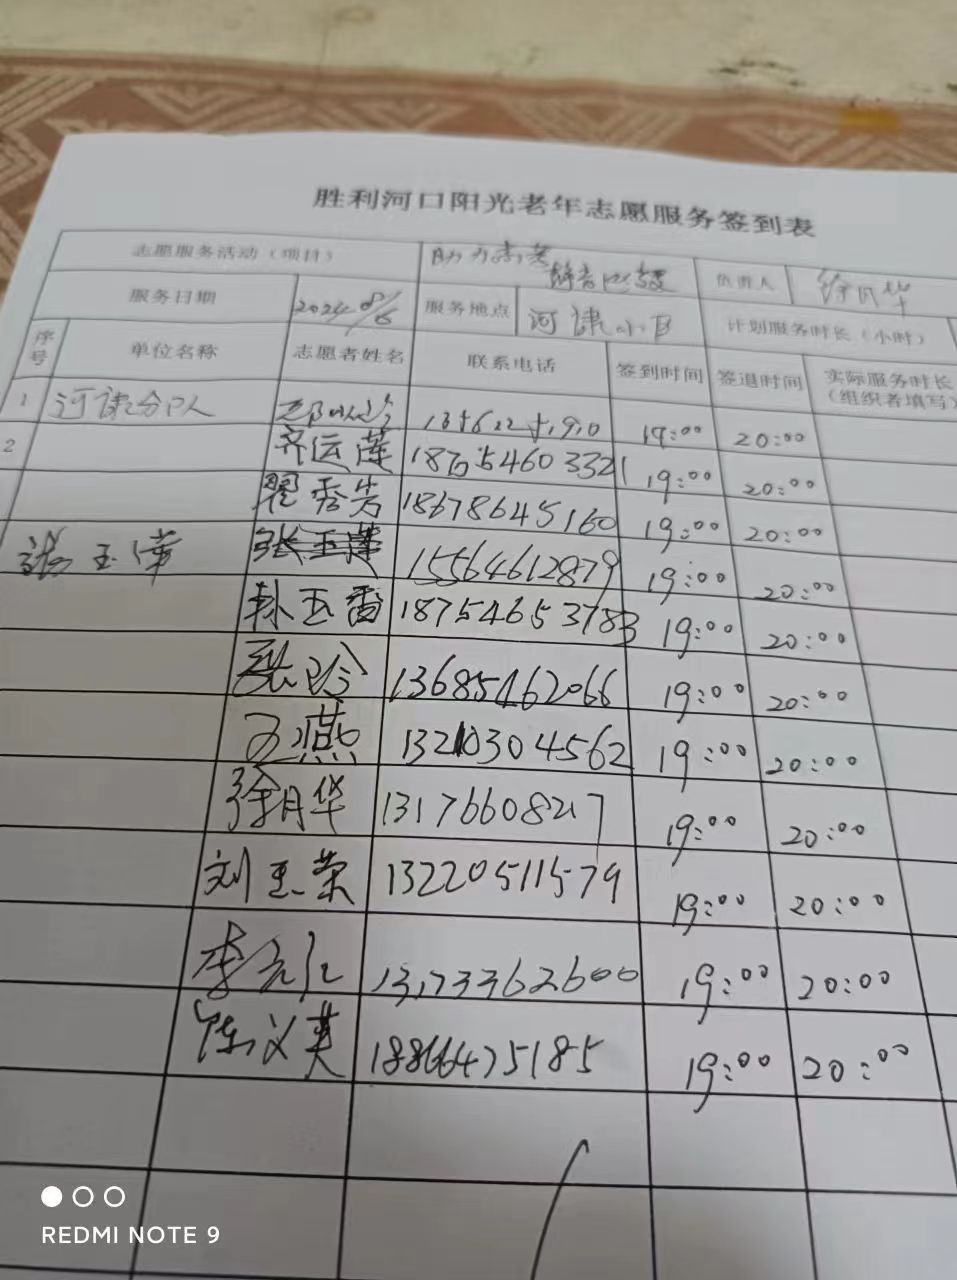 胜利河口阳光老年志愿服务签到表
志愿服务活动（项目） 助力高考 静音 负责人 徐月华
服务日期 2024 服务地点 河 小区 计划服务时长（小时）
序号 单位名称 志愿者姓名 联系电话 签到时间 签退时间 实际服务时长（组织者填写）
1 河 19:00 20:00
2 齐运莲 19:00 20:00
翟秀芳 18678645160 19:00 20:00
张玉莲 张玉莲 15564612879 19:00 20:00
孙玉香 18754653783 19:00 20:00
13685462066 19:00 20:00
王燕 19:00 20:00
徐月华 13176608217 19:00 20:00
刘玉荣 19:00 20:00
李 13173362600 19:00 20:00
陈义英 18866475185 19:00 20:00
REDMI NOTE 9